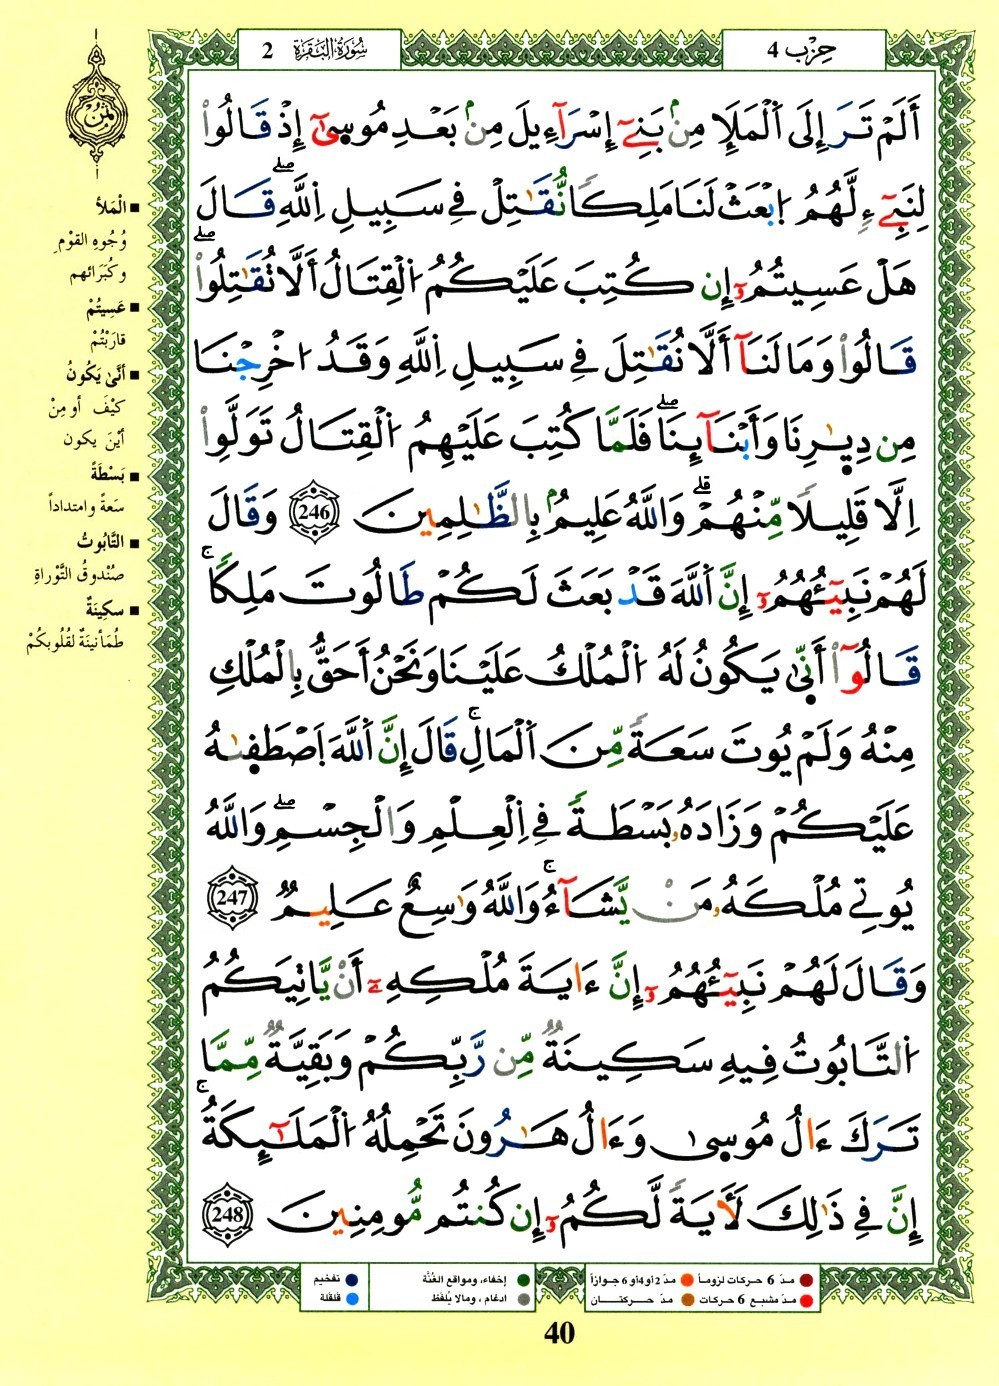 سُورَةُ البَقَرَةِ 2
حِزْب 4
ثُمُن
أَلَمْ تَرَ إِلَى اَ۬لْمَلَإِ مِنۢ بَنِےٓ إِسْرَآءِيلَ مِنۢ بَعْدِ مُوس۪يٰٓ إِذْ قَالُواْ
لِنَبِےٓءٖ لَّهُمُ اُ۪بْعَثْ لَنَا مَلِكاٗ نُّقَٰتِلْ فِے سَبِيلِ اِ۬للَّهِۖ قَالَ
هَلْ عَسِيتُمُۥٓ إِن كُتِبَ عَلَيْكُمُ اُ۬لْقِتَالُ أَلَّا تُقَٰتِلُواْۖ
قَالُواْ وَمَا لَنَآ أَلَّا نُقَٰتِلَ فِے سَبِيلِ اِ۬للَّهِ وَقَدُ ا۟خْرِجْنَا
مِن دِيٰ۪رِنَا وَأَبْنَآئِنَاۖ فَلَمَّا كُتِبَ عَلَيْهِمُ اُ۬لْقِتَالُ تَوَلَّوِاْ
اِلَّا قَلِيلاٗ مِّنْهُمْۗ وَاللَّهُ عَلِيمُۢ بِالظَّٰلِمِينَ 246 وَقَالَ
لَهُمْ نَبِيٓـُٔهُمُۥٓ إِنَّ اَ۬للَّهَ قَدْ بَعَثَ لَكُمْ طَالُوتَ مَلِكاٗۚ
قَالُوٓاْ أَنّ۪يٰ يَكُونُ لَهُ اُ۬لْمُلْكُ عَلَيْنَا وَنَحْنُ أَحَقُّ بِالْمُلْكِ
مِنْهُ وَلَمْ يُوتَ سَعَةٗ مِّنَ اَ۬لْمَالِۚ قَالَ إِنَّ اَ۬للَّهَ اَ۪صْطَف۪يٰهُ
عَلَيْكُمْ وَزَادَهُۥ بَسْطَةٗ فِے اِ۬لْعِلْمِ وَالْجِسْمِۖ وَاللَّهُ
يُوتِے مُلْكَهُۥ مَنْ يَّشَآءُۚ وَاللَّهُ وَٰسِعٌ عَلِيمٞ 247
وَقَالَ لَهُمْ نَبِيٓـُٔهُمُۥٓ إِنَّ ءَايَةَ مُلْكِهِۦٓ أَنْ يَّاتِيَكُمُ
اُ۬لتَّابُوتُ فِيهِ سَكِينَةٞ مِّن رَّبِّكُمْ وَبَقِيَّةٞ مِّمَّا
تَرَكَ ءَالُ مُوس۪يٰ وَءَالُ هَٰرُونَ تَحْمِلُهُ اُ۬لْمَلَٰٓئِكَةُۚ
إِنَّ فِے ذَٰلِكَ لَأٓيَةٗ لَّكُمُۥٓ إِن كُنتُم مُّومِنِينَ 248
■ الْمَلأ
وُجُوهِ القَوْمِ
وكُبَرَائهم
■ عَسِيتُمْ
قارَبْتُمْ
■ أنَّىٰ يَكُونُ
كيْفَ أو مِنْ
أيْنَ يكون
■ بَسْطَةً
سَعةً وامتداداً
■ التَّابُوتُ
صُنْدوقُ التَّوْراةِ
■ سكِينَةٌ
طُمَأنينَةٌ لقُلُوبكُمْ
مدّ 6 حركات لزوماً مدّ 2 أو 4 أو 6 جوازاً
مدّ مشبع 6 حركات مدّ حركتــان
إخفاء، ومواقع الغُنَّة
ادغام ، ومالا يُلفَظ
تفخيم
قلقلة
40